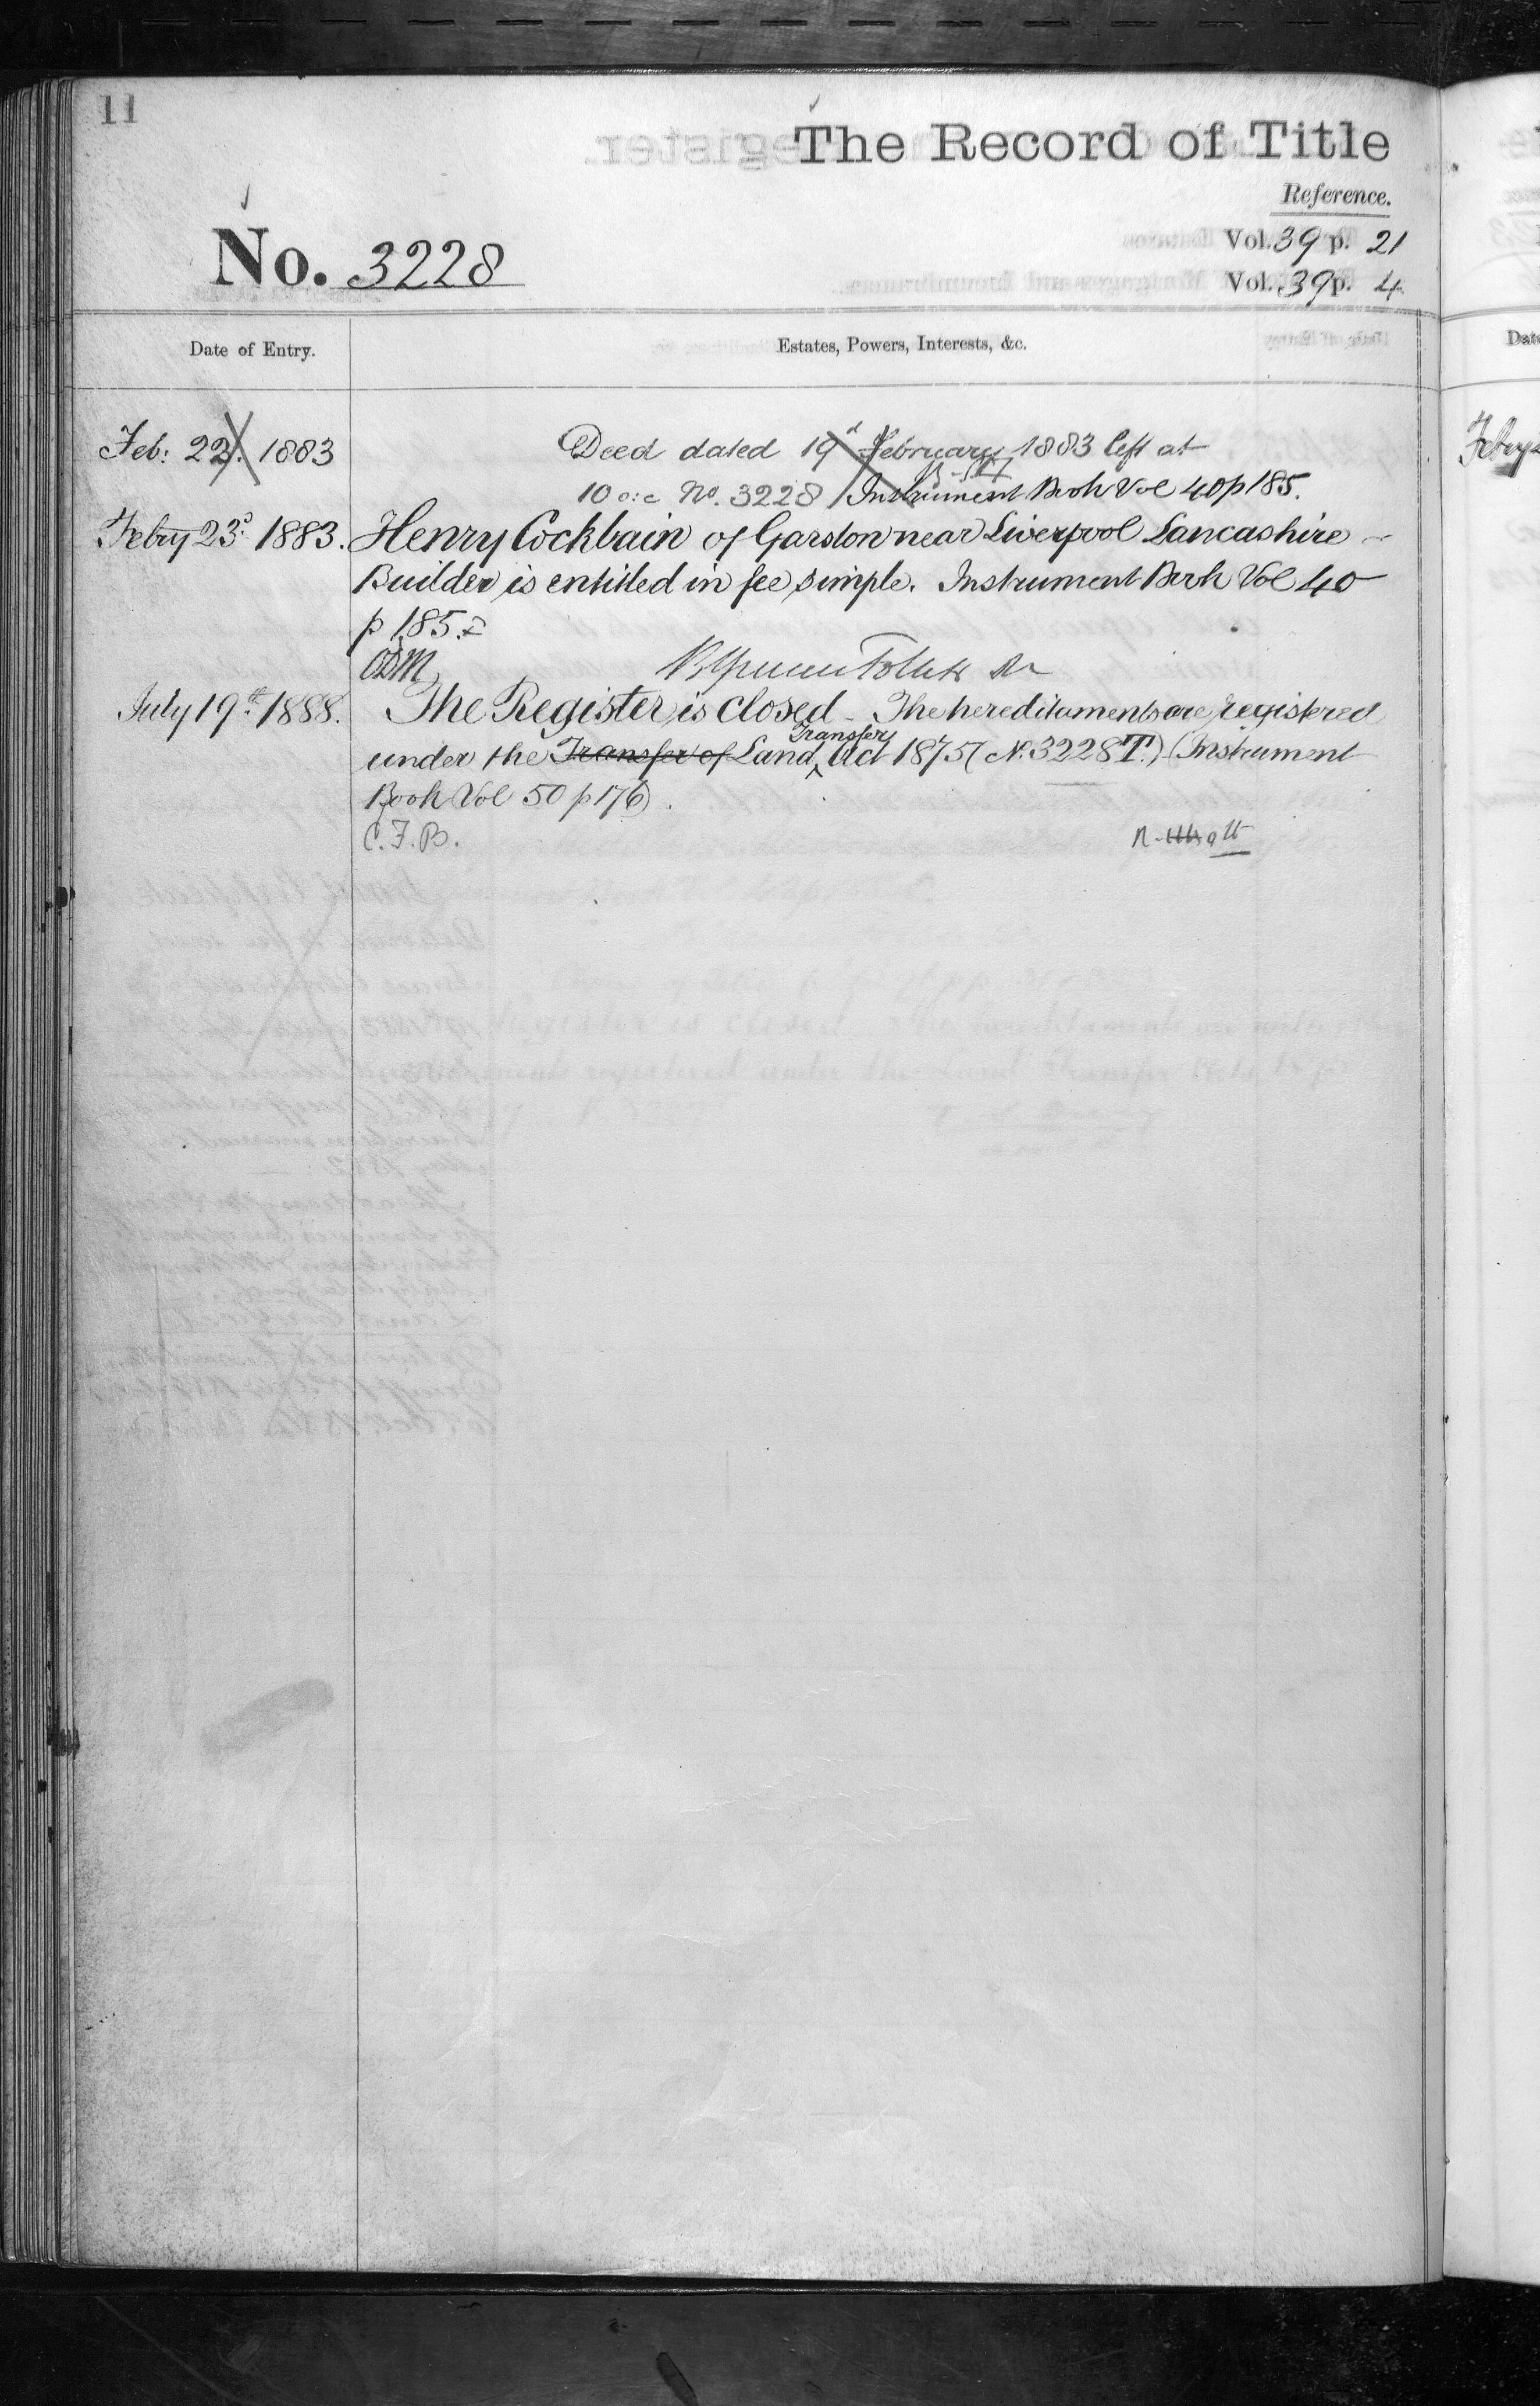 11
The Record of Title
Reference.
No. 3228
Vol. 39 p. 21
Vol. 39 p. 4
Date of Entry.
Estates, Powers, Interests, &c.
Feb: 22. 1883
Deed dated 19th February 1883 left at
10 o:c No. 3228 Instrument Book Vol 40 p 185.
Febry 23d 1883.
Henry Cockbain of Garston near Liverpool Lancashire
Builder is entitled in fee simple. Instrument Book Vol 40
p 185.
July 19th 1888.
The Register is closed - The hereditaments are registered
under the Transfer of Land Transfer Act 1875 (No. 3228 T.) (Instrument
Book Vol 50 p 176).
C.F.B.
Date
Febry